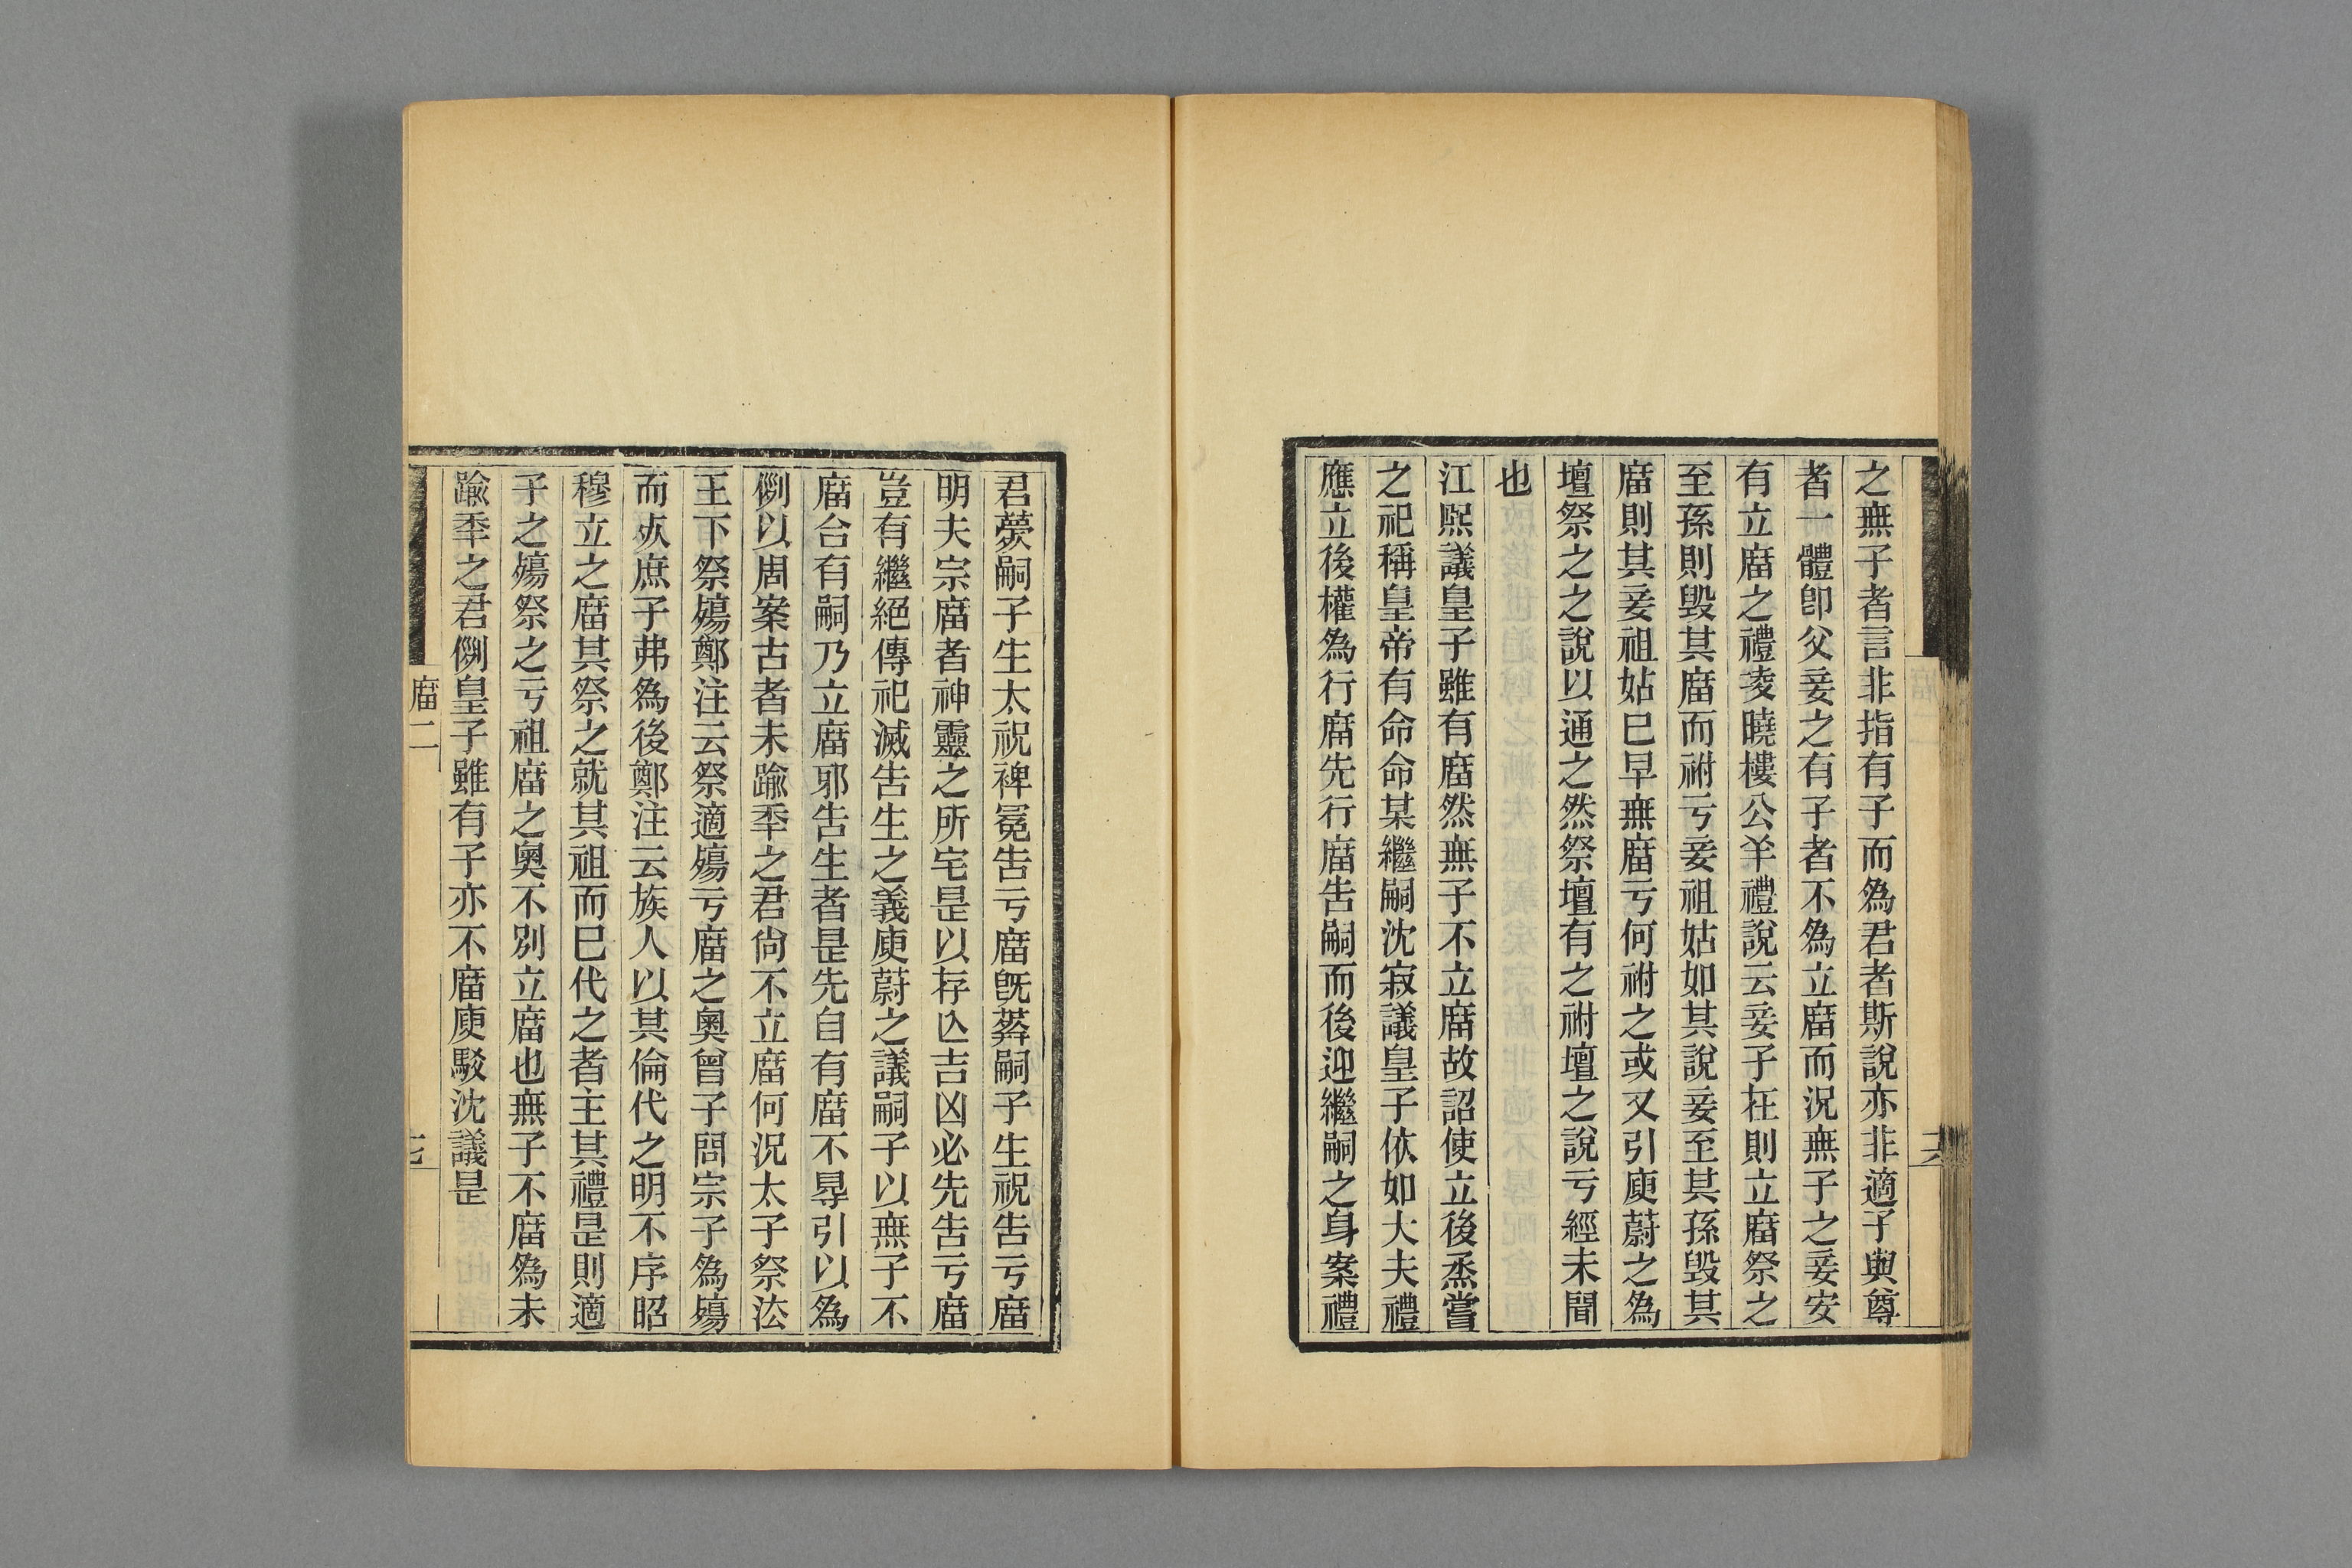 之無子者言非指有子而爲君者斯說亦非適子與尊
者一體卽父妾之有子者不爲立庿而況無子之妾安
有立庿之禮凌曉樓公羊禮說云妾子在則立庿祭之
至孫則毀其庿而祔亏妾祖姑如其說妾至其孫毀其
庿則其妾祖姑巳早無庿亏何祔之或又引庾蔚之爲
壇祭之之說以通之然祭壇有之祔壇之說亏經未聞
也
江熙議皇子雖有庿然無子不立庿故詔使立後烝嘗
之祀稱皇帝有命命某繼嗣沈寂議皇子依如大夫禮
應立後權爲行庿先行庿告嗣而後迎繼嗣之身案禮
君薨嗣子生太祝裨冕告亏庿旣葬嗣子生祝告亏庿
明夫宗庿者神靈之所宅是以存亾吉凶必先告亏庿
豈有繼絕傳祀滅告生之義庾蔚之議嗣子以無子不
庿台有嗣乃立庿邪告生者是先自有庿不得引以爲
例以周案古者未踰秊之君尙不立庿何況太子祭法
王下祭殤鄭注云祭適殤亏庿之奧曾子問宗子爲殤
而㱙庶子弗爲後鄭注云族人以其倫代之明不序昭
穆立之庿其祭之就其祖而巳代之者主其禮是則適
子之殤祭之亏祖庿之奧不別立庿也無子不庿爲未
踰秊之君例皇子雖有子亦不庿庾駁沈議是
庿二
七